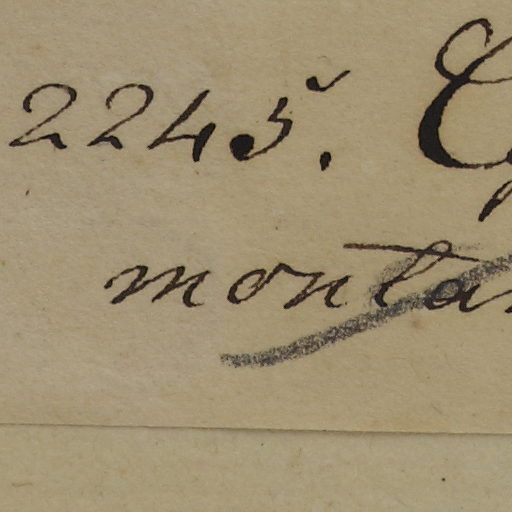 2245.
montan